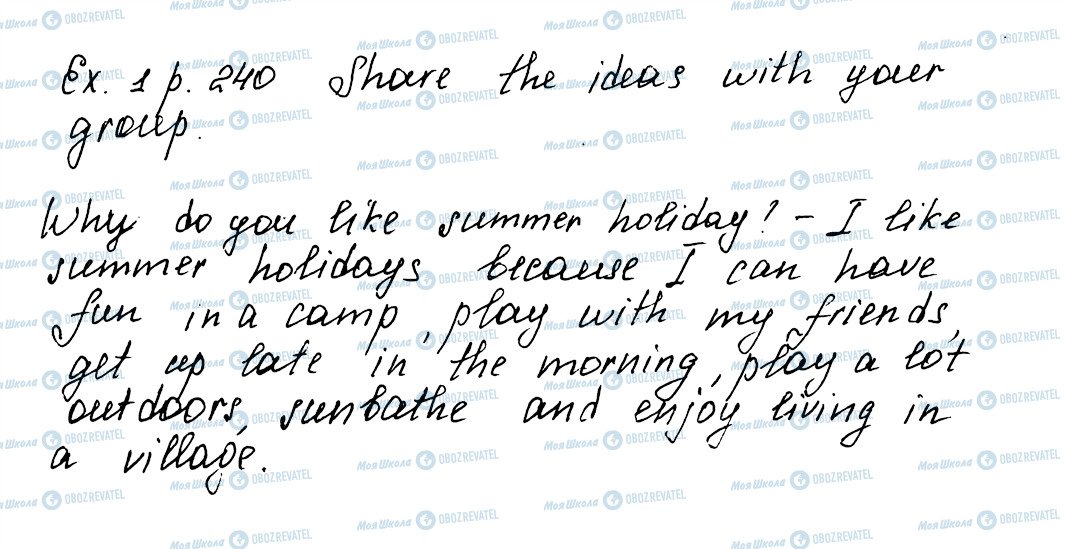 Ex. 1 p. 240 Share the ideas with your
group.
Why do you like summer holiday? - I like
summer holidays because I can have
fun in a camp, play with my friends,
get up late in the morning, play a lot
outdoors, sunbathe and enjoy living in
a village.
Моя Школа OBOZREVATEL